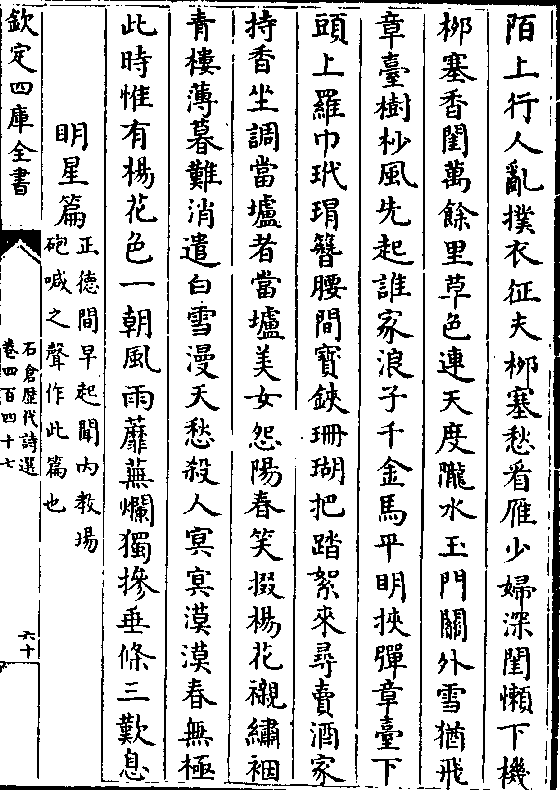 陌上行人亂撲衣征夫栁塞愁看雁少婦深閨懶下機
栁塞香閨萬餘里草色連天度隴水玉門關外雪猶飛
章臺樹杪風先起誰家浪子千金馬平明挾彈章臺下
頭上羅巾玳瑁簪腰間寶鋏珊瑚把踏絮來尋賣酒家
持香坐調當壚者當壚美女怨陽春笑掇楊花襯繡裀
青樓薄暮難消遣白雪漫天愁殺人冥冥漠漠春無極
此時惟有楊花色一朝風雨蘼蕪爛獨摻垂條三歎息
明星篇
正德間早起聞内教場
砲喊之聲作此篇也
欽定四庫全書
石倉歷代詩選
卷四百四十七
六十